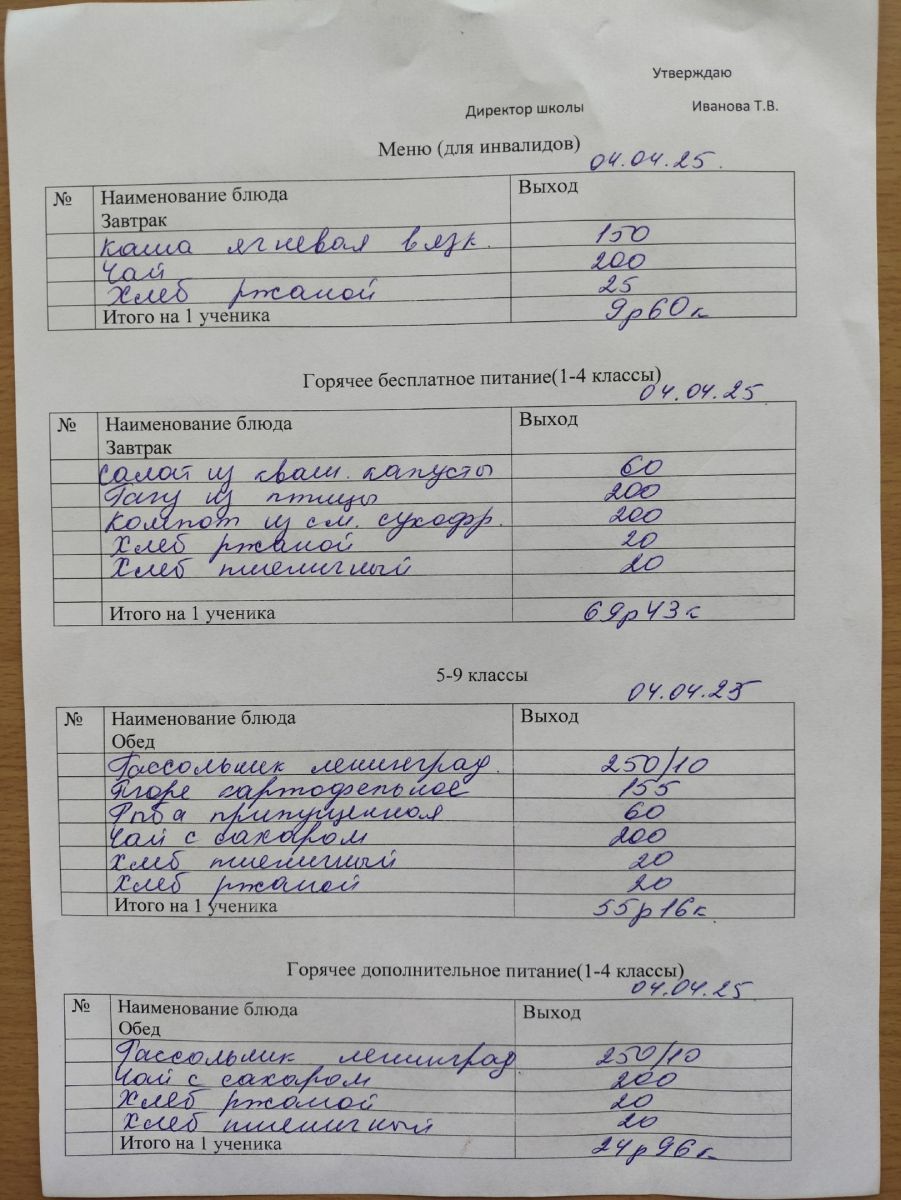 Утверждаю
Директор школы Иванова Т.В.
Меню (для инвалидов)
04.04.25.
№ Наименование блюда Выход
Завтрак
Каша ягневая вязк. 150
Чай 200
Хлеб ржаной 25
Итого на 1 ученика 9р60к
Горячее бесплатное питание(1-4 классы)
04.04.25.
№ Наименование блюда Выход
Завтрак
Салат из кваш. капусты 60
Рагу из птицы 200
Компот из см. сухофр. 200
Хлеб ржаной 20
Хлеб пшеничный 20
Итого на 1 ученика 69р43к
5-9 классы
04.04.25
№ Наименование блюда Выход
Обед
Рассольник ленинград. 250/10
Пюре картофельное 155
Рыба припущенная 60
Чай с сахаром 200
Хлеб пшеничный 20
Хлеб ржаной 20
Итого на 1 ученика 55р16к.
Горячее дополнительное питание(1-4 классы)
04.04.25.
№ Наименование блюда Выход
Обед
Рассольник ленинград. 250/10
Чай с сахаром 200
Хлеб ржаной 20
Хлеб пшеничный 20
Итого на 1 ученика 24р96к.